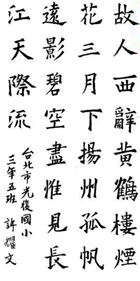 故人西辭黃鶴樓煙
花三月下揚州孤帆
遠影碧空盡惟見長
江天際流
台北市光復國小
三年五班